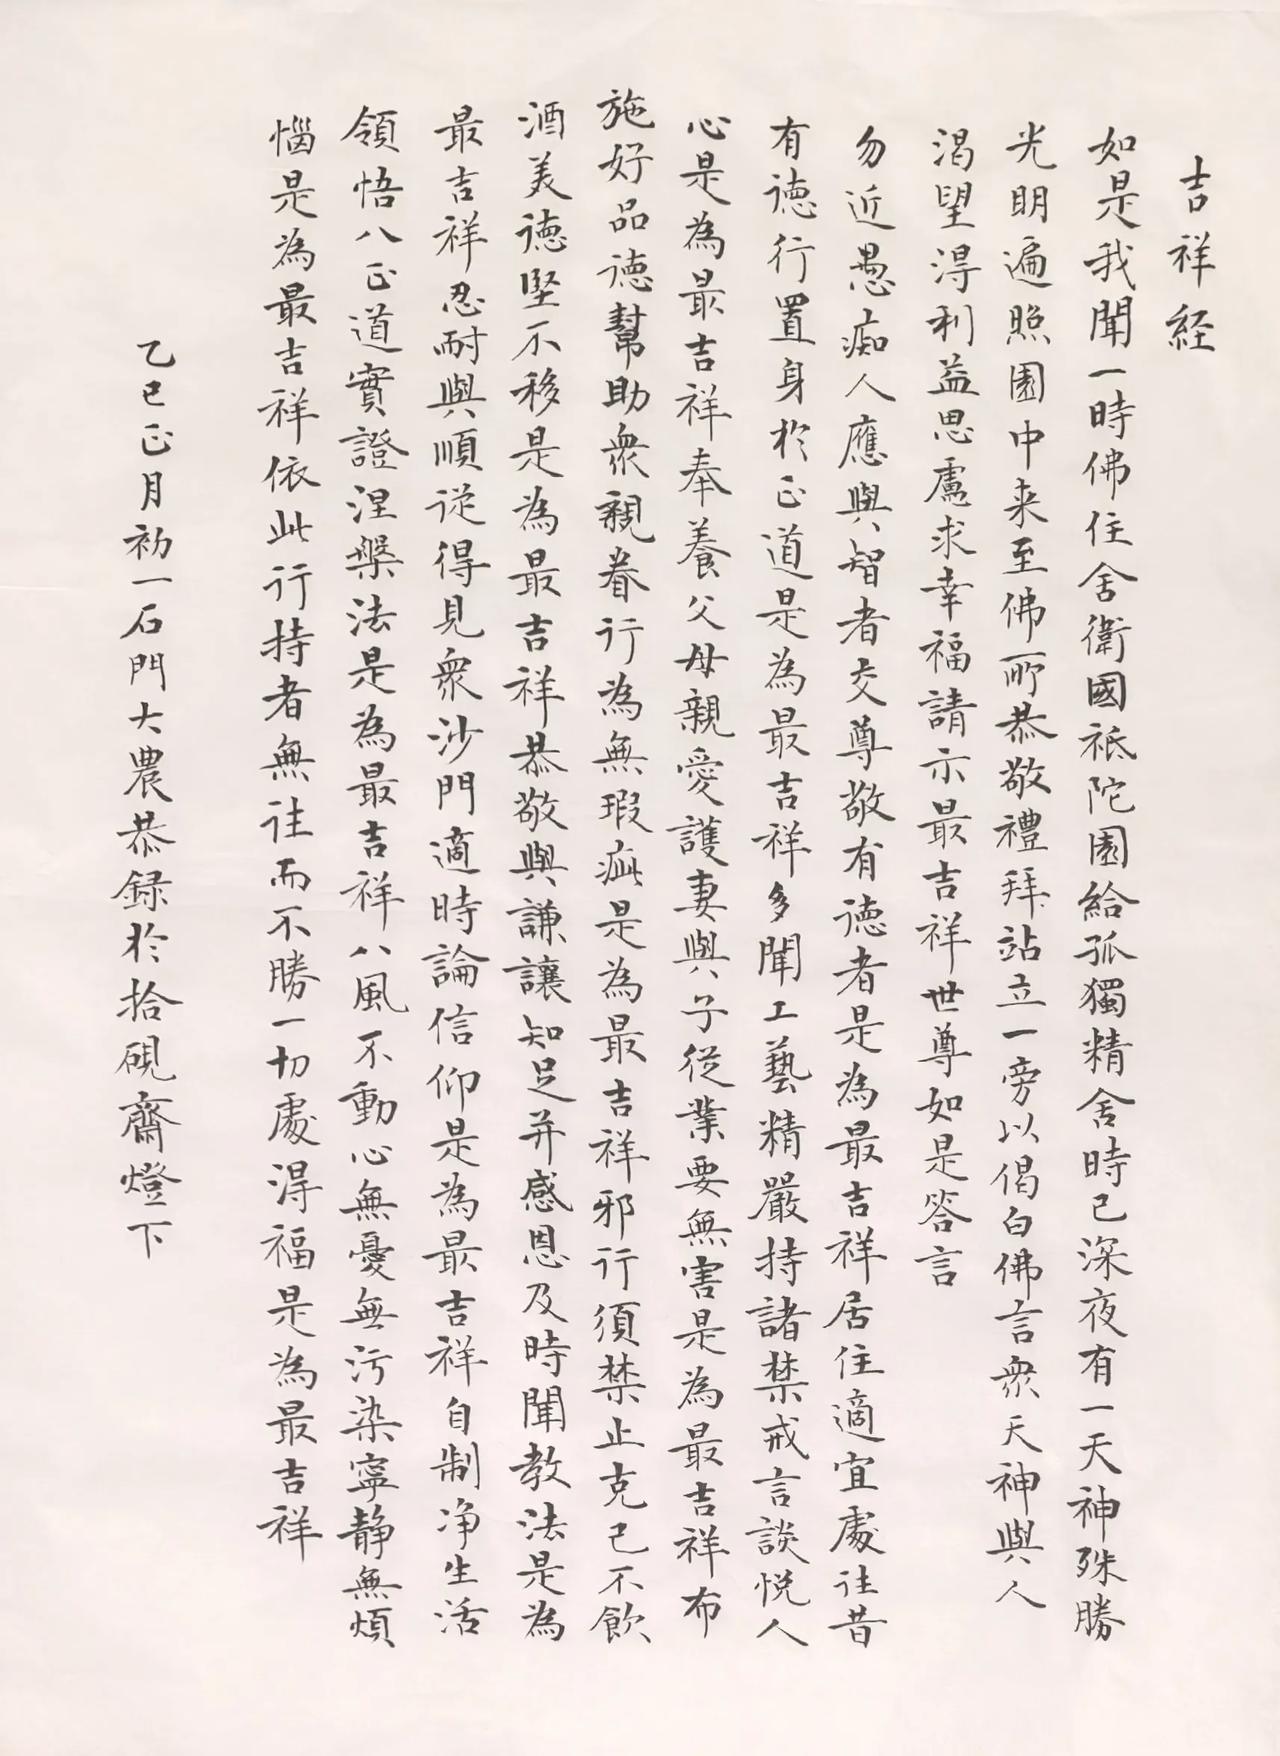 吉祥経
如是我聞一時佛住舍衛國祗陀園給孤獨精舍時已深夜有一天神殊勝
光明遍照園中来至佛所恭敬禮拜站立一旁以偈白佛言衆天神與人
渴望得利益思慮求幸福請示最吉祥世尊如是答言
勿近愚痴人應與智者交尊敬有德者是為最吉祥居住適宜處往昔
有德行置身於正道是為最吉祥多聞工藝精嚴持諸禁戒言談悦人
心是為最吉祥奉養父母親愛護妻與子從業要無害是為最吉祥布
施好品德幫助衆親眷行為無瑕疵是為最吉祥邪行須禁止克己不飲
酒美德堅不移是為最吉祥恭敬與謙讓知足并感恩及時聞教法是為
最吉祥忍耐與順從得見衆沙門適時論信仰是為最吉祥自制净生活
領悟八正道實證涅槃法是為最吉祥八風不動心無憂無污染寧静無煩
惱是為最吉祥依此行持者無往而不勝一切處得福是為最吉祥
乙巳正月初一石門大農恭録於拾硯齋燈下